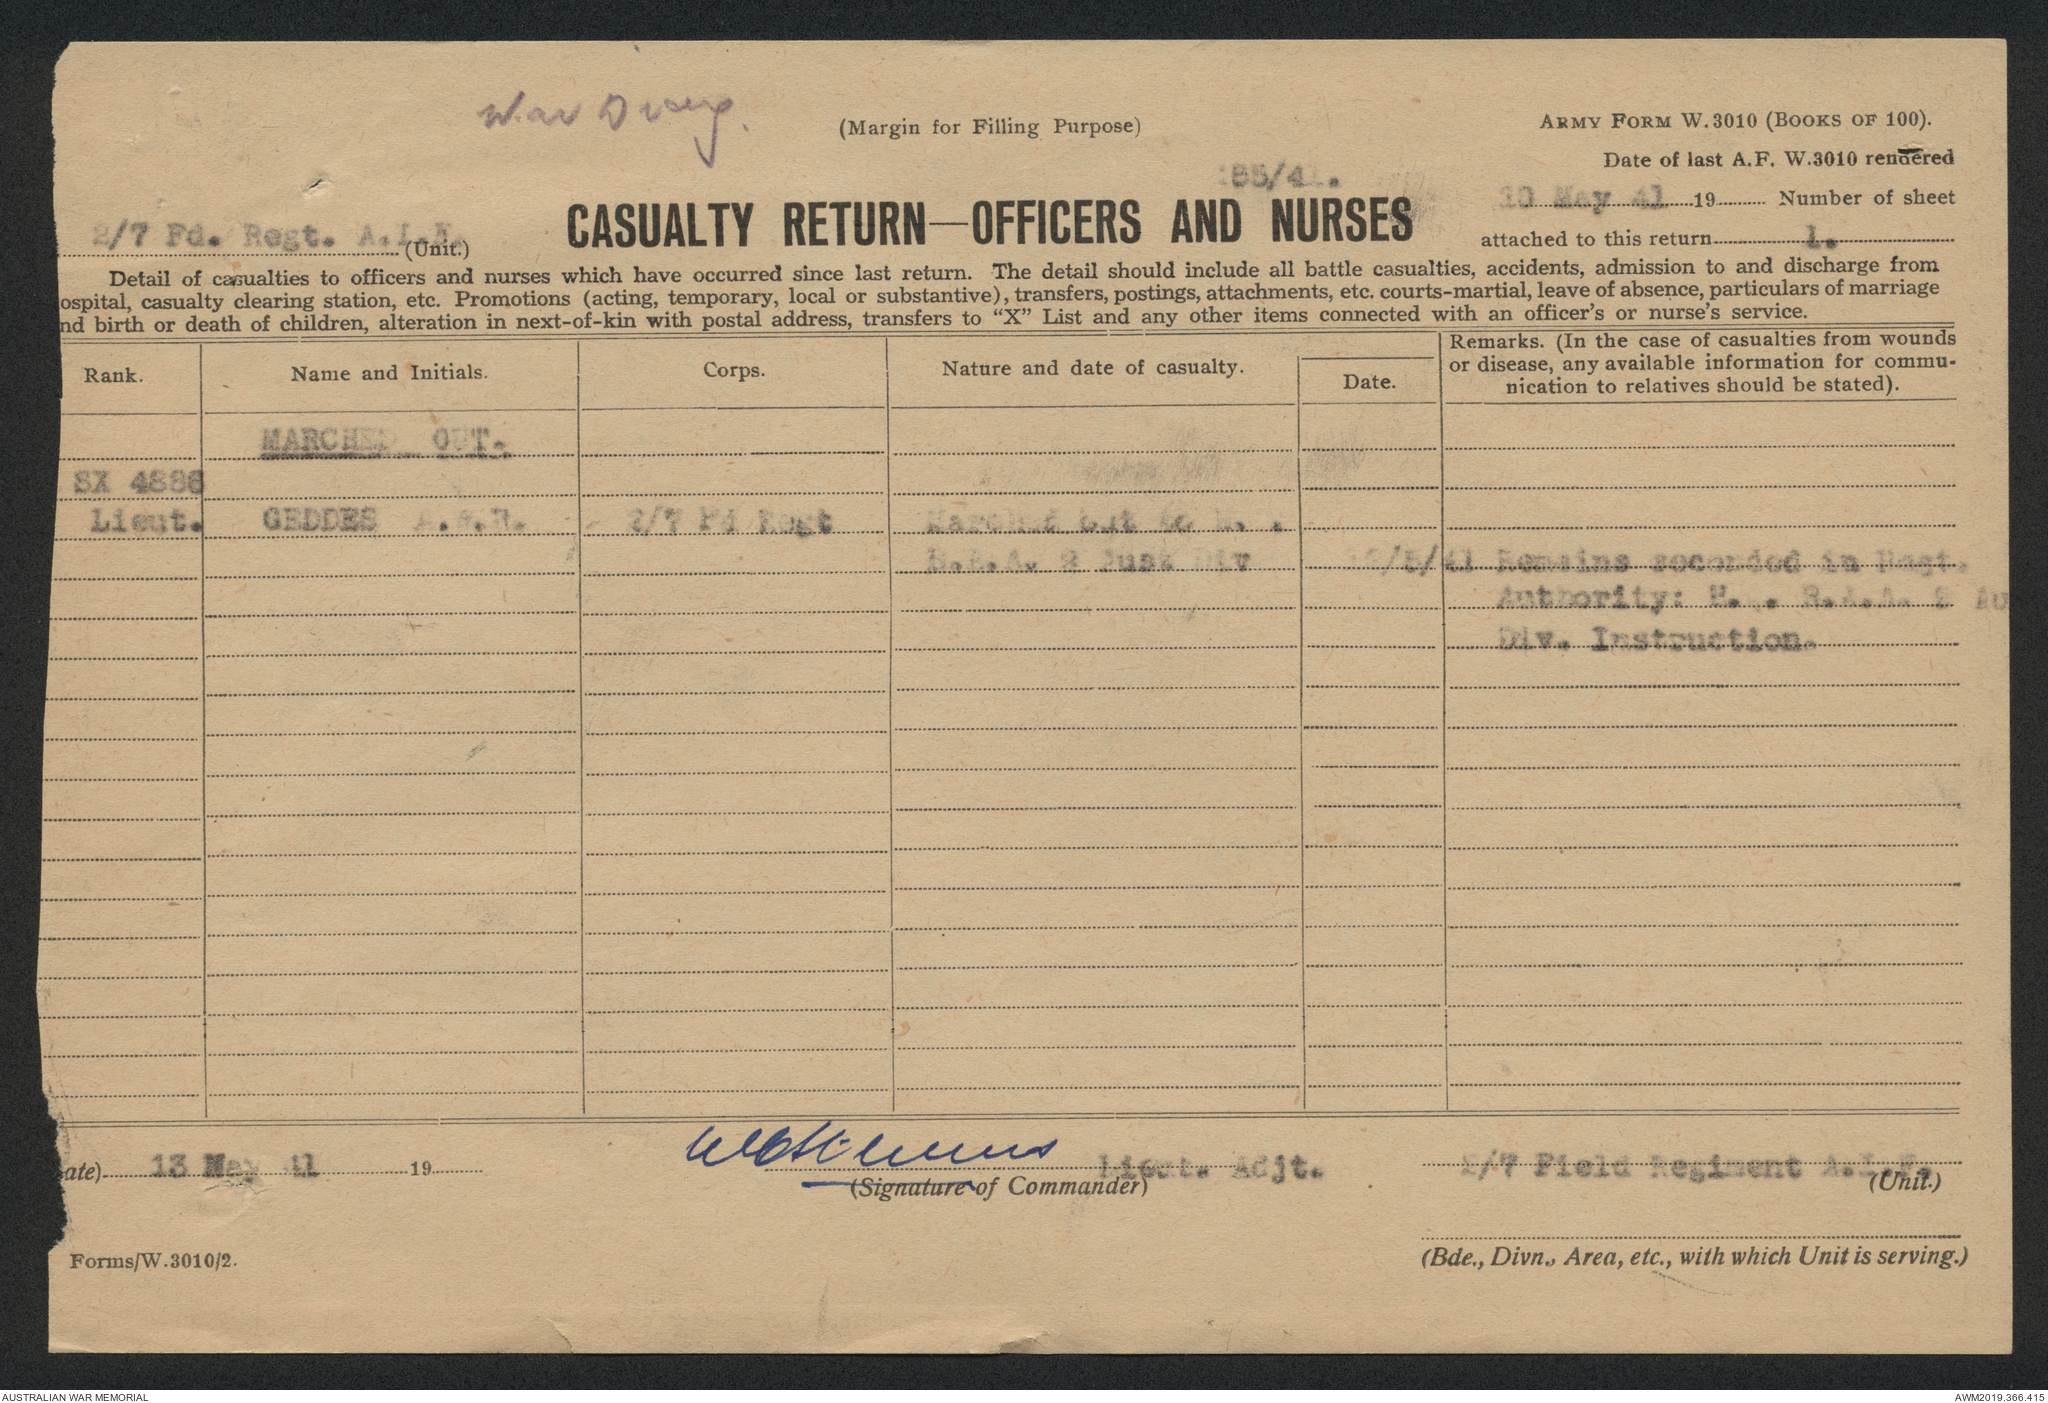 War Diary.
(Margin for Filling Purpose)
ARMY FORM W.3010 (BOOKS OF 100).
Date of last A.F. W.3010 rendered
85/41.
10 May 41 19 Number of sheet
2/7 Fd. Regt. A.I.F. (Unit.)
CASUALTY RETURN—OFFICERS AND NURSES
attached to this return 1.
Detail of casualties to officers and nurses which have occurred since last return. The detail should include all battle casualties, accidents, admission to and discharge from
ospital, casualty clearing station, etc. Promotions (acting, temporary, local or substantive), transfers, postings, attachments, etc. courts-martial, leave of absence, particulars of marriage
nd birth or death of children, alteration in next-of-kin with postal address, transfers to “X” List and any other items connected with an officer's or nurse's service.
Rank. Name and Initials. Corps. Nature and date of casualty. Date. Remarks. (In the case of casualties from wounds
or disease, any available information for commu-
nication to relatives should be stated).
MARCHED OUT.
SX 4886
Lieut. GEDDES 2/7 Fd Regt Marched out to
R.A.A. 9 Aust Div /5/41 Remains seconded in Regt.
Authority: R.A.A. 9 Au
Div. Instruction.
ate) 13 May 41 19 Lieut. Adjt. 2/7 Field Regiment A.I.F.
(Signature of Commander) (Unit.)
Forms/W.3010/2.
(Bde., Divn., Area, etc., with which Unit is serving.)
AUSTRALIAN WAR MEMORIAL AWM2019.366.415